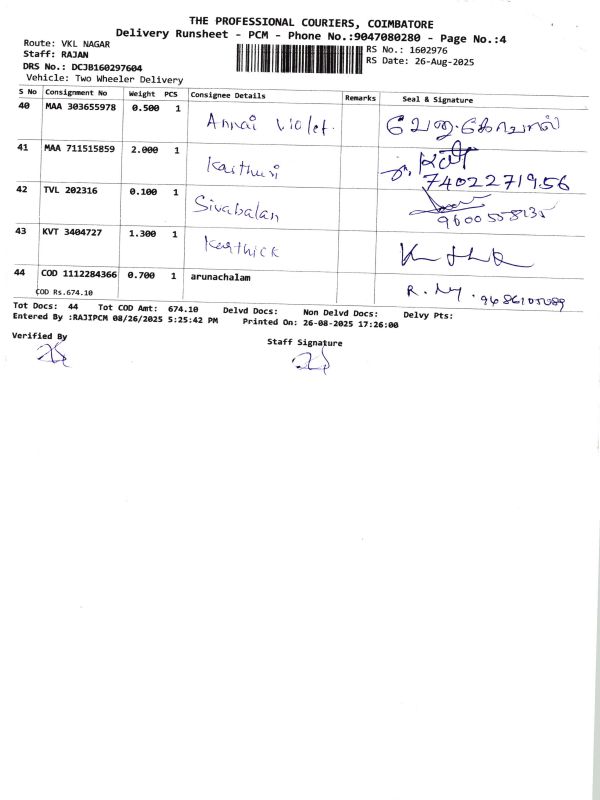 THE PROFESSIONAL COURIERS, COIMBATORE
Delivery Runsheet - PCM - Phone No.:9047080280 - Page No.:4
Route: VKL NAGAR
Staff: RAJAN
DRS No.: DCJB160297604
Vehicle: Two Wheeler Delivery
RS No.: 1602976
RS Date: 26-Aug-2025
S No Consignment No Weight PCS Consignee Details Remarks Seal & Signature
40 MAA 303655978 0.500 1 Annai Violet
41 MAA 711515859 2.000 1 Karthuri
7402271956
42 TVL 202316 0.100 1 Sivabalan
43 KVT 3404727 1.300 1 Karthick
44 COD 1112284366 0.700 1 arunachalam
COD Rs.674.10
Tot Docs: 44 Tot COD Amt: 674.10 Delvd Docs: Non Delvd Docs: Delvy Pts:
Entered By :RAJIPCM 08/26/2025 5:25:42 PM Printed On: 26-08-2025 17:26:00
Verified By
Staff Signature